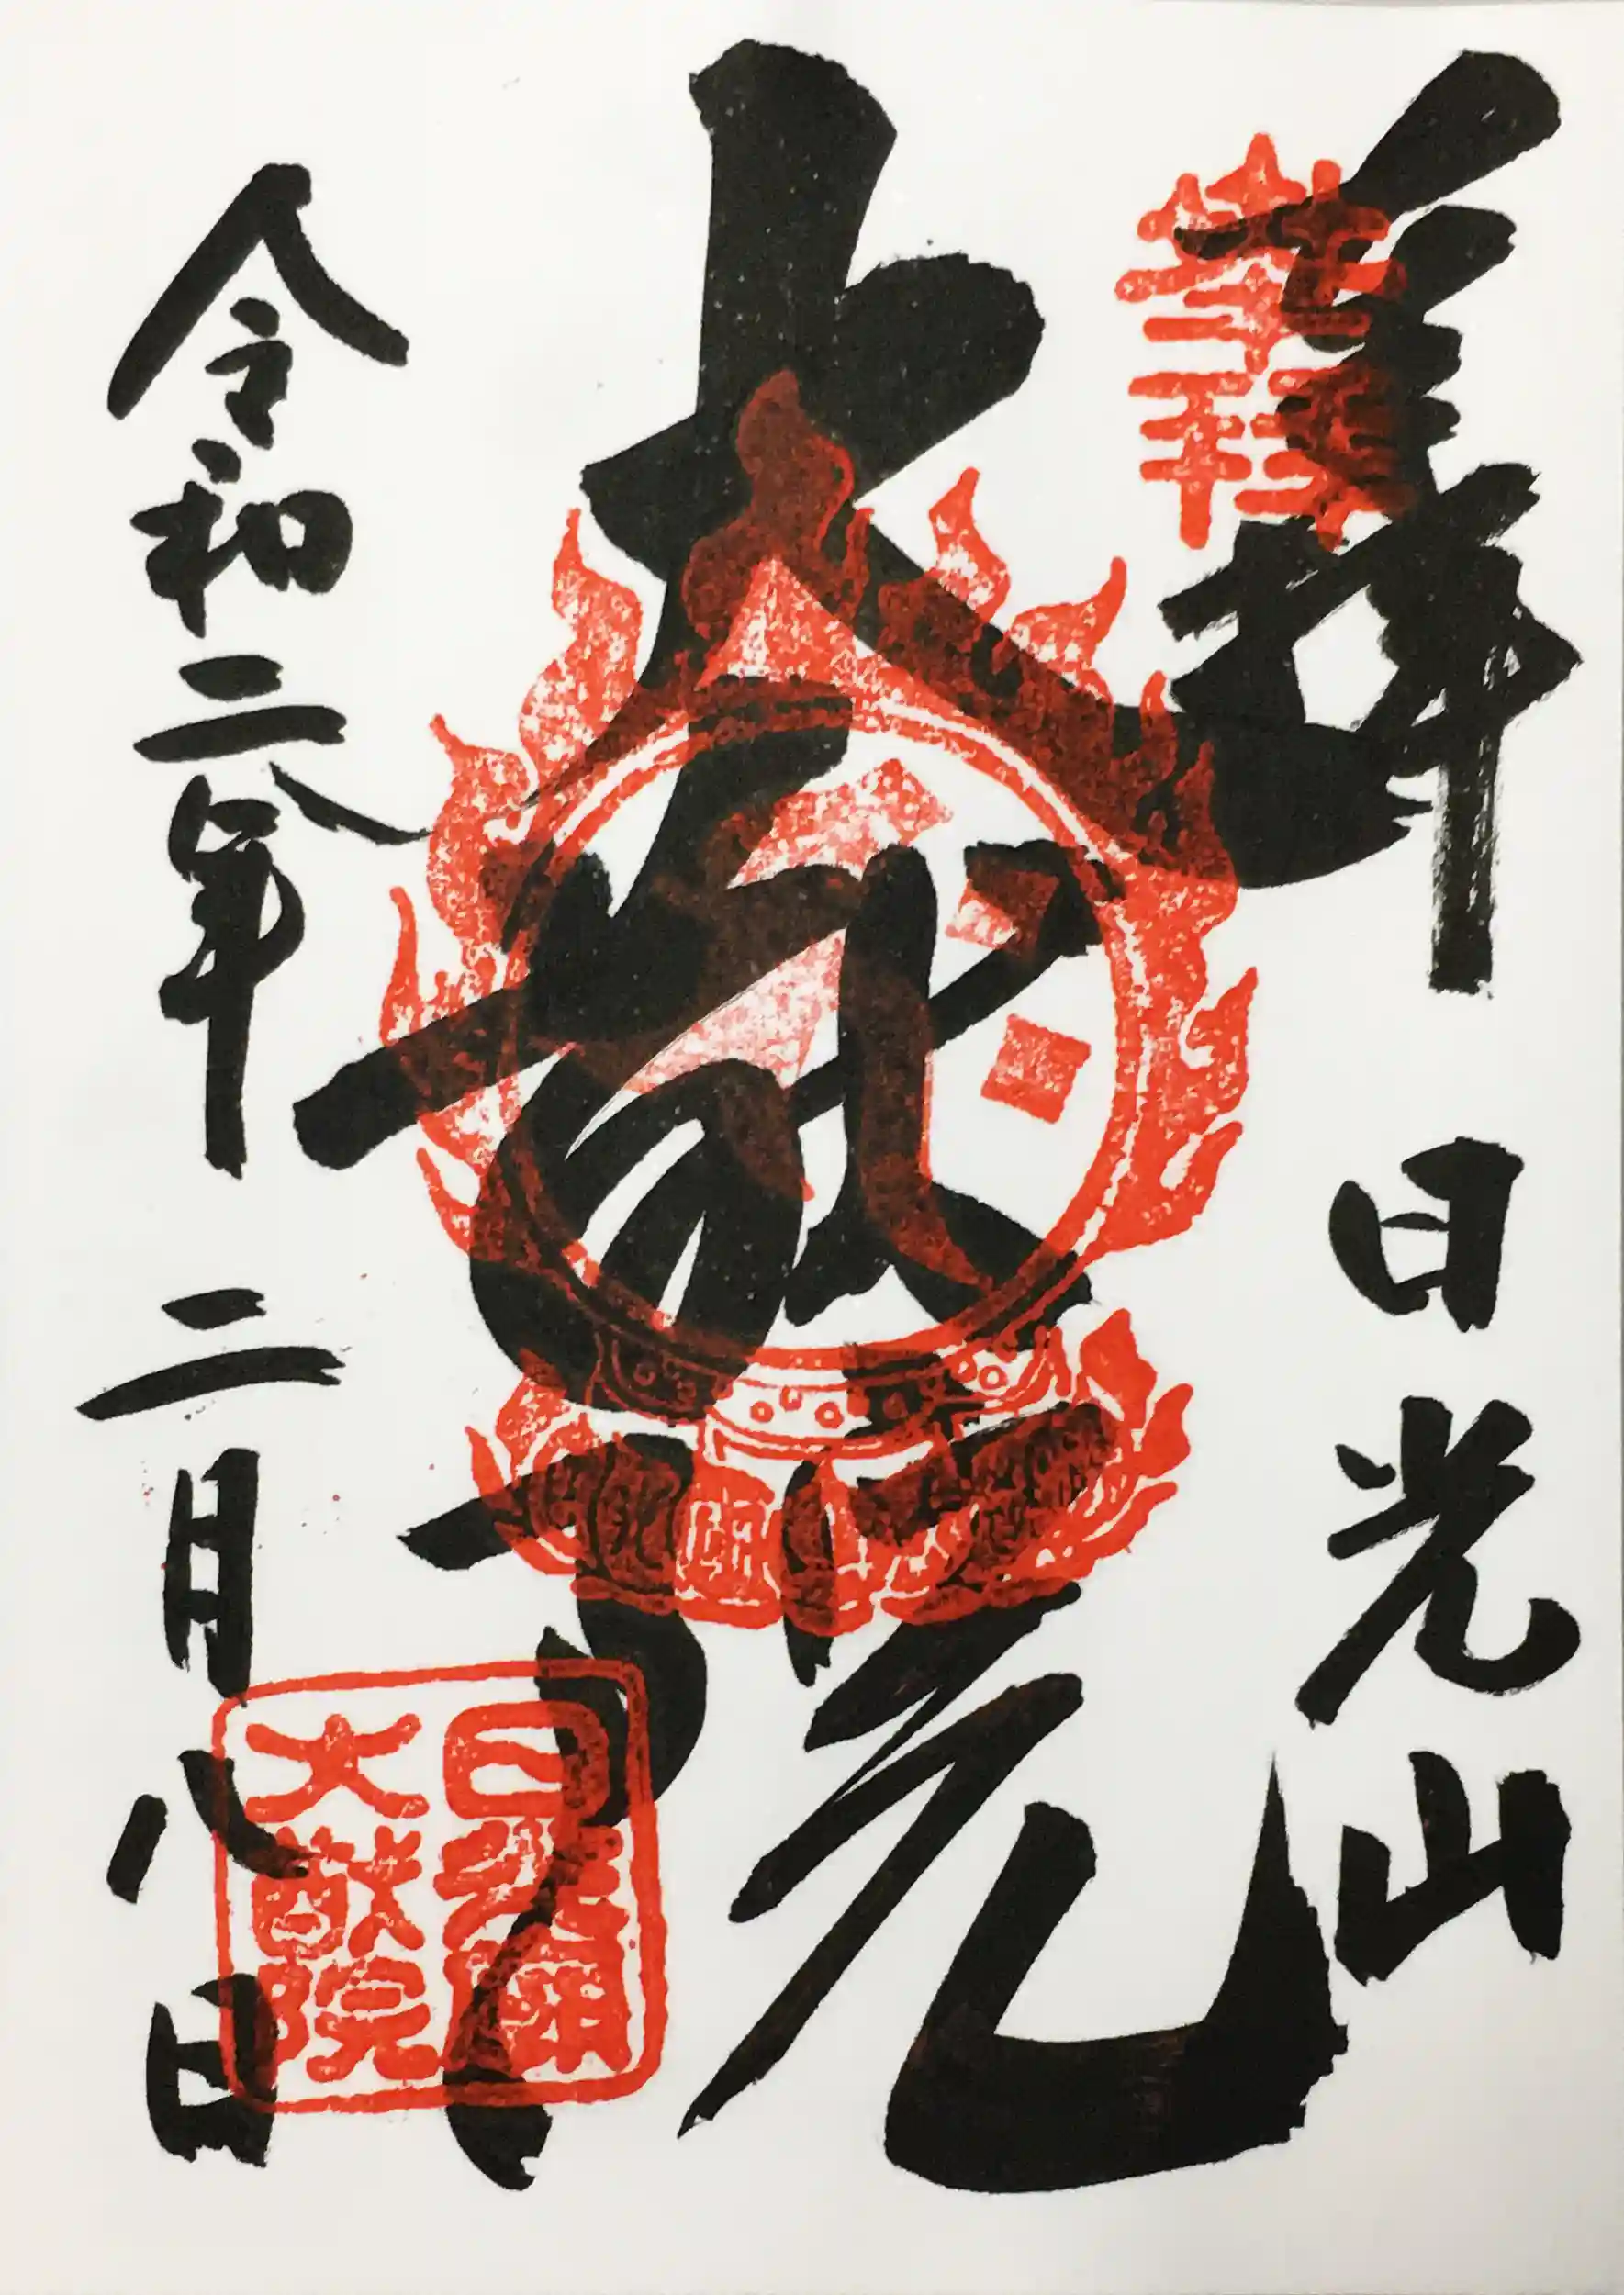 奉拝 日光山
大猷院
令和二年 二月 八日
日光廟
大猷院